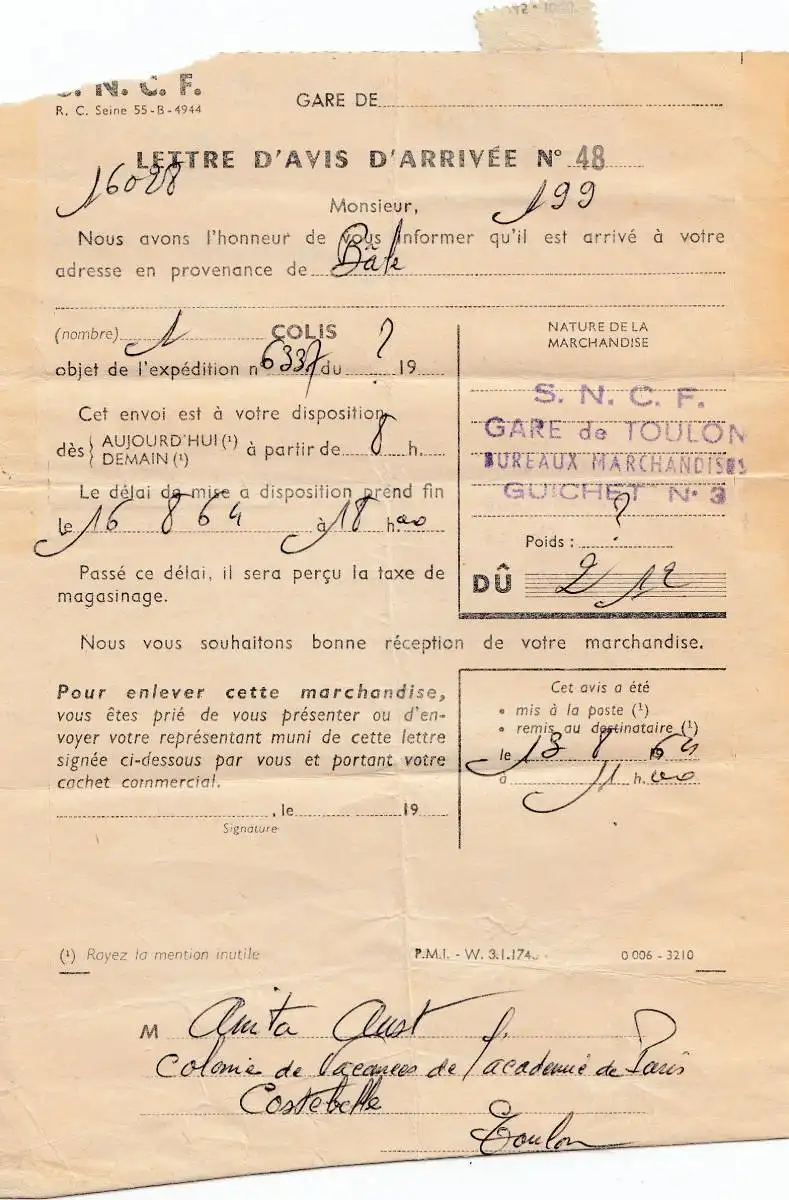 S. N. C. F.
R. C. Seine 55-B-4944
GARE DE
LETTRE D'AVIS D'ARRIVÉE N° 48
16028
199
Monsieur,
Nous avons l'honneur de vous informer qu'il est arrivé à votre
adresse en provenance de Bâle
(nombre) 1 COLIS
objet de l'expédition n° 6337 du ? 19
Cet envoi est à votre disposition
dès { AUJOURD'HUI (¹)
DEMAIN (¹)
à partir de 8 h.
Le délai de mise a disposition prend fin
le 16 8 64 à 18 h. 00
Passé ce délai, il sera perçu la taxe de
magasinage.
NATURE DE LA
MARCHANDISE
S. N. C. F.
GARE de TOULON
BUREAUX MARCHANDISES
GUICHET N° 3
Poids : ?
DÛ 2 12
Nous vous souhaitons bonne réception de votre marchandise.
Pour enlever cette marchandise,
vous êtes prié de vous présenter ou d'en-
voyer votre représentant muni de cette lettre
signée ci-dessous par vous et portant votre
cachet commercial.
, le 19
Signature
Cet avis a été
• mis à la poste (¹)
• remis au destinataire (¹)
le 13 8 64
à 11 h. 00
(¹) Rayez la mention inutile
P.M.I. - W. 3.1.174
0 006 - 3210
M Anita Aust
Colonie de Vacances de l'academie de Paris
Costebelle
Toulon